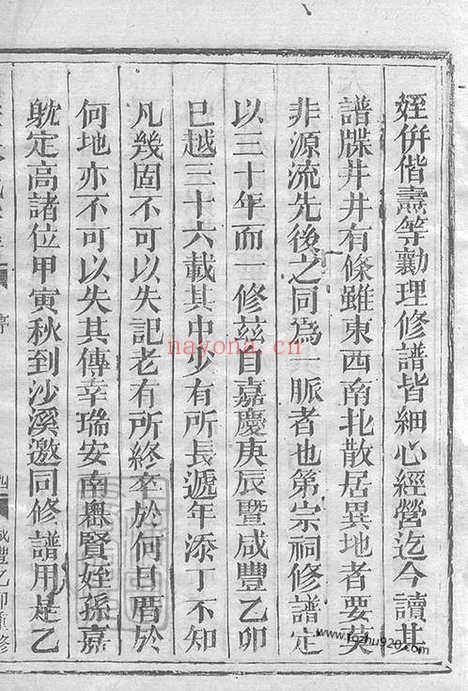 姪併偕燾等勷理修譜皆細心經營迄今讀其
譜牒井井有條雖東西南北散居異地者要莫
非源流先後之同為一脈者也第宗祠修譜定
以三十年而一修茲自嘉慶庚辰暨咸豐乙卯
已越三十六載其中少有所長遞年添丁不知
凡幾固不可以失記老有所終卒於何日厝於
何地亦不可以失其傳幸瑞安南懋賢姪孫嘉
躭定高諸位甲寅秋到沙溪邀同修譜用是乙
序
四
咸豐乙卯重修
nayona.cn